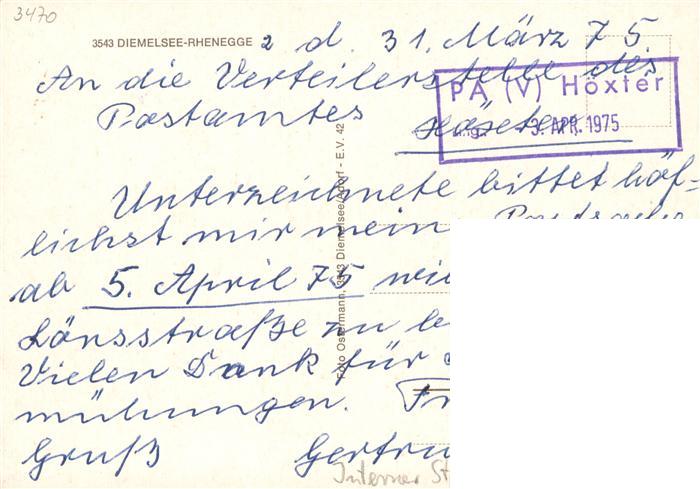 3470
3543 DIEMELSEE-RHENEGGE 2 d. 31. März 75.
An die Verteilerstelle des
Postamtes Höxter
PA (V) Höxter
3. APR. 1975
Unterzeichnete bittet höf-
lichst mir meine Postsache
ab 5. April 75
Lönsstraße zu
Vielen Dank für
mühungen.
Gruß
Foto Ostermann, 3543 Diemelsee/Adorf - E.V. 42
Interner